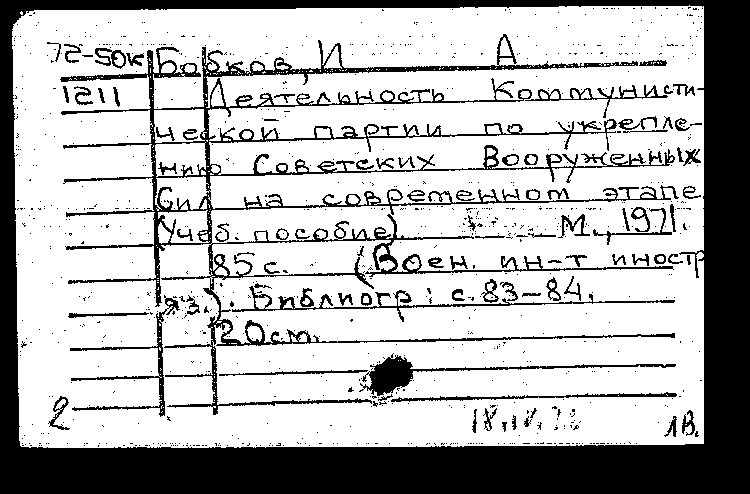 72-50к Бобков, И А
1211 Деятельность Коммунисти-
ческой партии по укрепле-
нию Советских Вооруженных
Сил на современном этапе
(Учеб. пособие) М., 1971.
85 с. (Воен. ин-т иностр
яз.). Библиогр: с. 83-84.
20см.
2 1В.